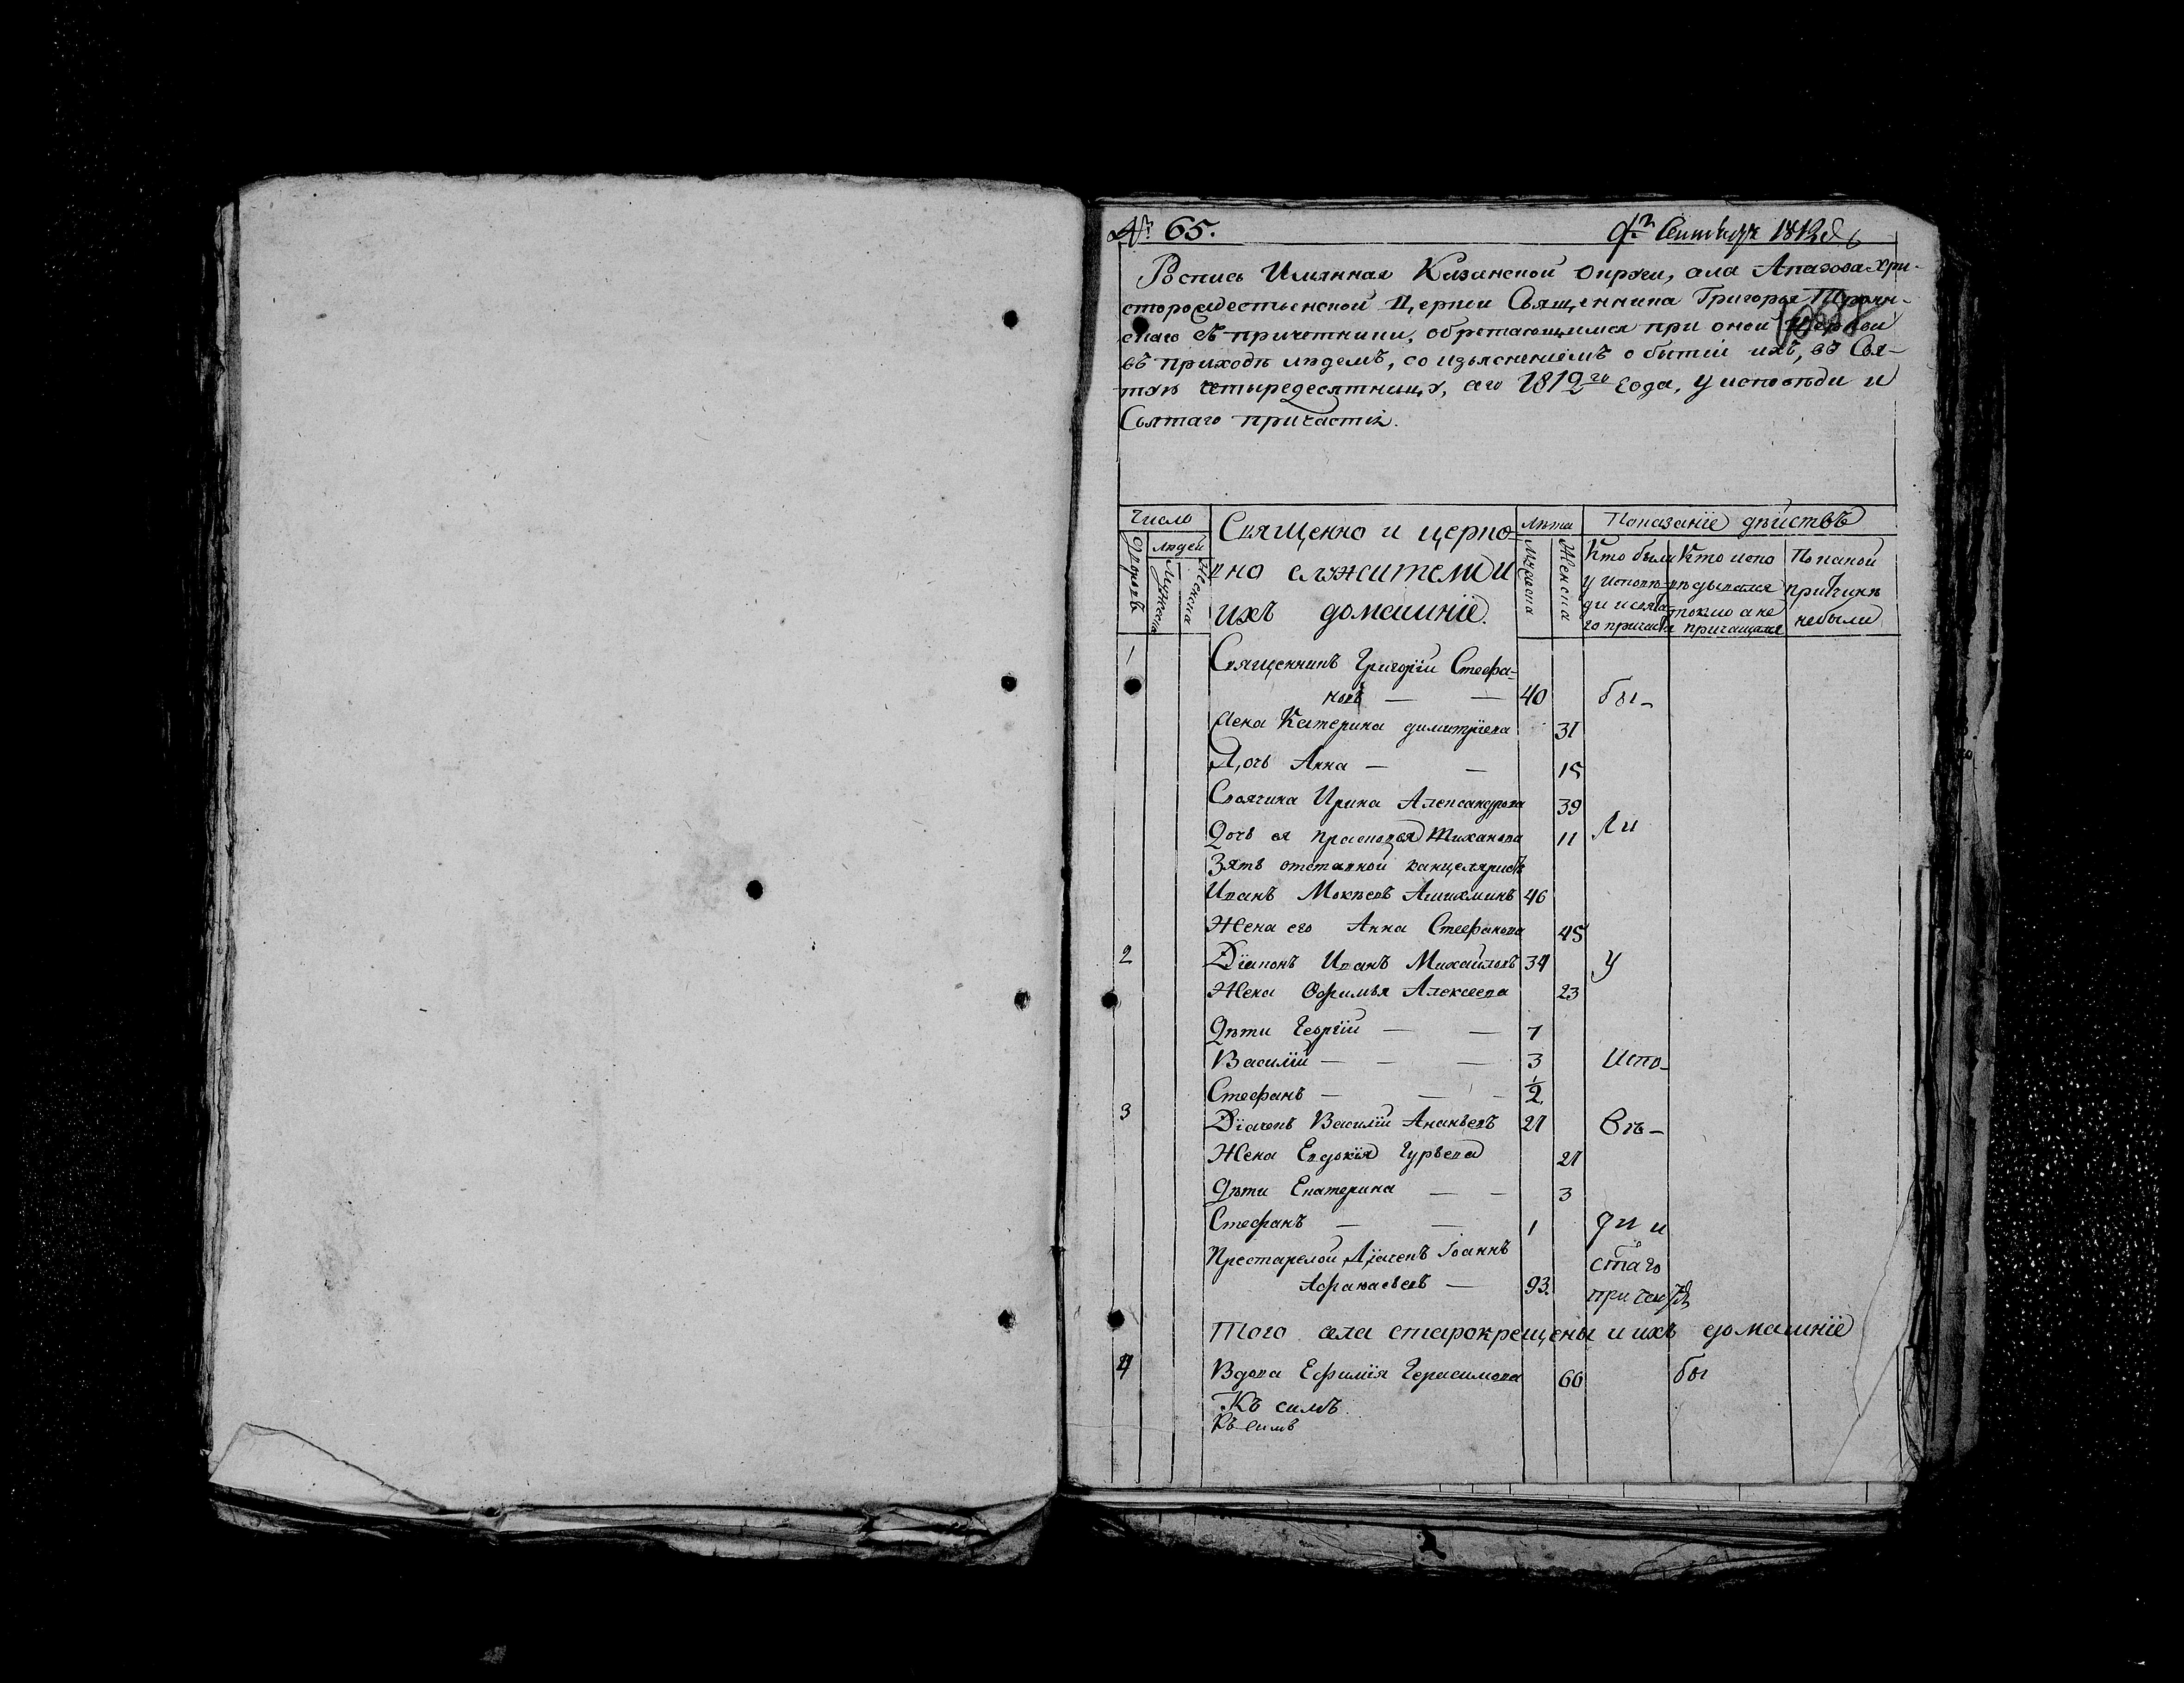 № 65.
Сентября 1812
Роспись Имянная Казанской округи, села Апазова Хри-
сторождественской Церкви Священника Григорья Троян-
скаго съ причетники, обретающимся при оной Церкви
въ приходѣ людемъ, со изъяснениемъ о бытіи ихъ, въ Свя-
тую четыредесятницу, сего 1812го года, у исповѣди и
Святаго причастія.
Число
Дворовъ
людей
Мужеска
Женска
Священно и церко-
вно служители и
ихъ домашніе.
Лѣта
Мужеска
Женска
Показаніе дѣйствъ
Кто были у исповѣ-ди и свята-го причастія
Кто испо-вѣдывался токмо а не причащался
По какой причинѣ небыли
1
Священникъ Григорій Стефа-
новъ — — 40 бы-
Жена Катерина Димитріева 31
Дочь Анна — — 15
Своячина Ирина Александрова 39
Дочь ея Прасковья Тиханова 11 ли
Зять отставной канцеляристъ
Иванъ Мокѣевъ Ашихминъ 46
Жена его Анна Стефанова 45
2 Діаконъ Иванъ Михайловъ 34 у
Жена Офимья Алексеева 23
Дѣти Георгій — — 7
Василій — — — 3 Испо-
Стефанъ — — — ½
3 Діачекъ Василій Ананьевъ 27 вѣ-
Жена Евдокія Гурьева 27
Дѣти Екатерина — — 3
Стефанъ — — 1 ди и
Престарелой Діачекъ Іоаннъ стаго
Афанасьевъ — 93. причас
Того села старокрещены и ихъ домашніе
4 Вдова Ефимія Герасимова 66 бы
Къ симъ
Къ симъ